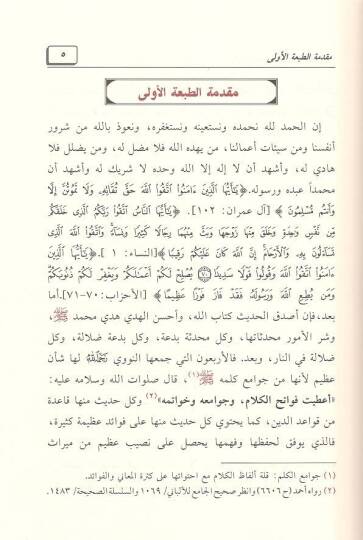 مقدمة الطبعة الأولى
٥
مقدمة الطبعة الأولى
إن الحمد لله نحمده ونستعينه ونستغفره، ونعوذ بالله من شرور
أنفسنا ومن سيئات أعمالنا، من يهده الله فلا مضل له، ومن يضلل فلا
هادي له، وأشهد أن لا إله إلا الله وحده لا شريك له وأشهد أن
محمداً عبده ورسوله. ﴿يَٰٓأَيُّهَا ٱلَّذِينَ ءَامَنُوا۟ ٱتَّقُوا۟ ٱللَّهَ حَقَّ تُقَاتِهِۦ وَلَا تَمُوتُنَّ إِلَّا
وَأَنتُم مُّسْلِمُونَ﴾ [آل عمران: ١٠٢]. ﴿يَٰٓأَيُّهَا ٱلنَّاسُ ٱتَّقُوا۟ رَبَّكُمُ ٱلَّذِى خَلَقَكُم
مِّن نَّفْسٍ وَٰحِدَةٍ وَخَلَقَ مِنْهَا زَوْجَهَا وَبَثَّ مِنْهُمَا رِجَالًا كَثِيرًا وَنِسَآءً وَٱتَّقُوا۟ ٱللَّهَ ٱلَّذِى
تَسَآءَلُونَ بِهِۦ وَٱلْأَرْحَامَ إِنَّ ٱللَّهَ كَانَ عَلَيْكُمْ رَقِيبًا﴾ [النساء: ١]. ﴿يَٰٓأَيُّهَا ٱلَّذِينَ
ءَامَنُوا۟ ٱتَّقُوا۟ ٱللَّهَ وَقُولُوا۟ قَوْلًا سَدِيدًا ۝٧٠ يُصْلِحْ لَكُمْ أَعْمَٰلَكُمْ وَيَغْفِرْ لَكُمْ ذُنُوبَكُمْ
وَمَن يُطِعِ ٱللَّهَ وَرَسُولَهُۥ فَقَدْ فَازَ فَوْزًا عَظِيمًا﴾ [الأحزاب: ٧٠-٧١]. أما
بعد، فإن أصدق الحديث كتاب الله، وأحسن الهدي هدي محمد ﷺ،
وشر الأمور محدثاتها، وكل محدثة بدعة، وكل بدعة ضلالة، وكل
ضلالة في النار، وبعد. فالأربعون التي جمعها النووي رحمه الله لها شأن
عظيم لأنها من جوامع كلمه ﷺ(١)، قال صلوات الله وسلامه عليه:
«أعطيت فواتح الكلام، وجوامعه وخواتمه»(٢) وكل حديث منها قاعدة
من قواعد الدين، كما يحتوي كل حديث منها على فوائد عظيمة كثيرة،
فالذي يوفق لحفظها وفهمها يحصل على نصيب عظيم من ميراث
(١) جوامع الكلم: قلة ألفاظ الكلام مع احتوائها على كثرة المعاني والفوائد.
(٢) رواه أحمد (ح ٦٦٠٦) وانظر صحيح الجامع للألباني/ ١٠٦٩ والسلسلة الصحيحة/ ١٤٨٣.